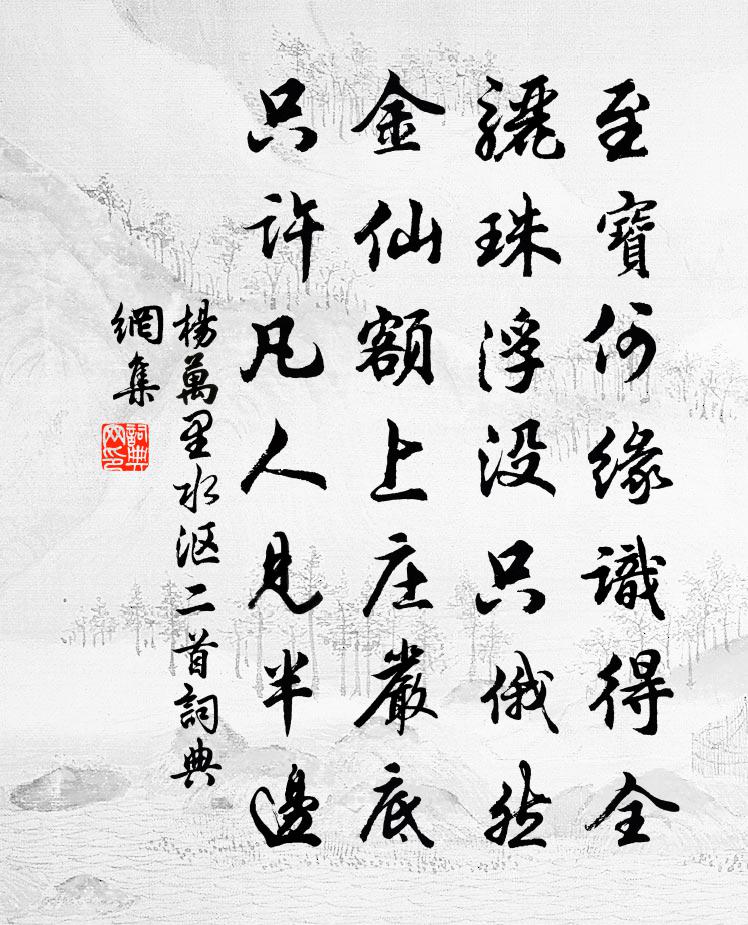 至寶何緣識得全
驪珠浮没只俄然
金仙額上庄嚴底
只許凡人見半邊
楊萬里水漚二首詞典
網集
詞典
网印